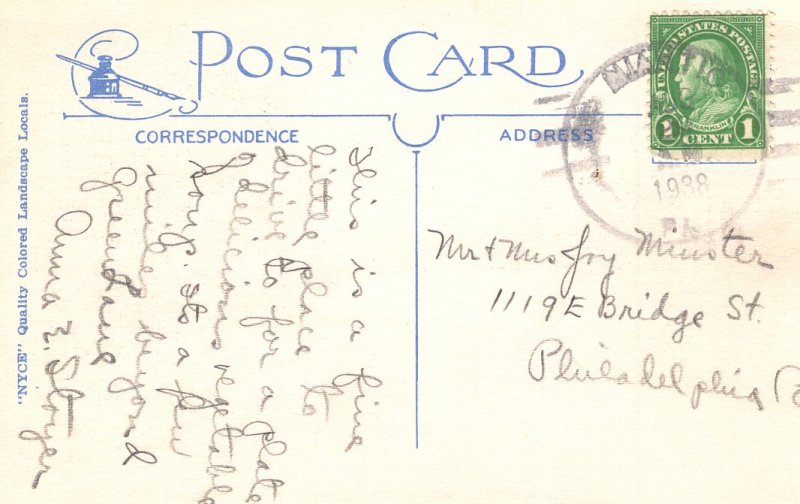 POST CARD
CORRESPONDENCE
ADDRESS
"NYCE" Quality Colored Landscape Locals.
UNITED STATES POSTAGE
FRANKLIN
1 CENT 1
1938
PA.
This is a fine
little place to
drive to for a plate
of delicious vegetable
soup. Its a few
miles beyond
Greenlane
Anna E.
Mr & Mrs Joy Minster
1119 E Bridge St.
Philadelphia Pa